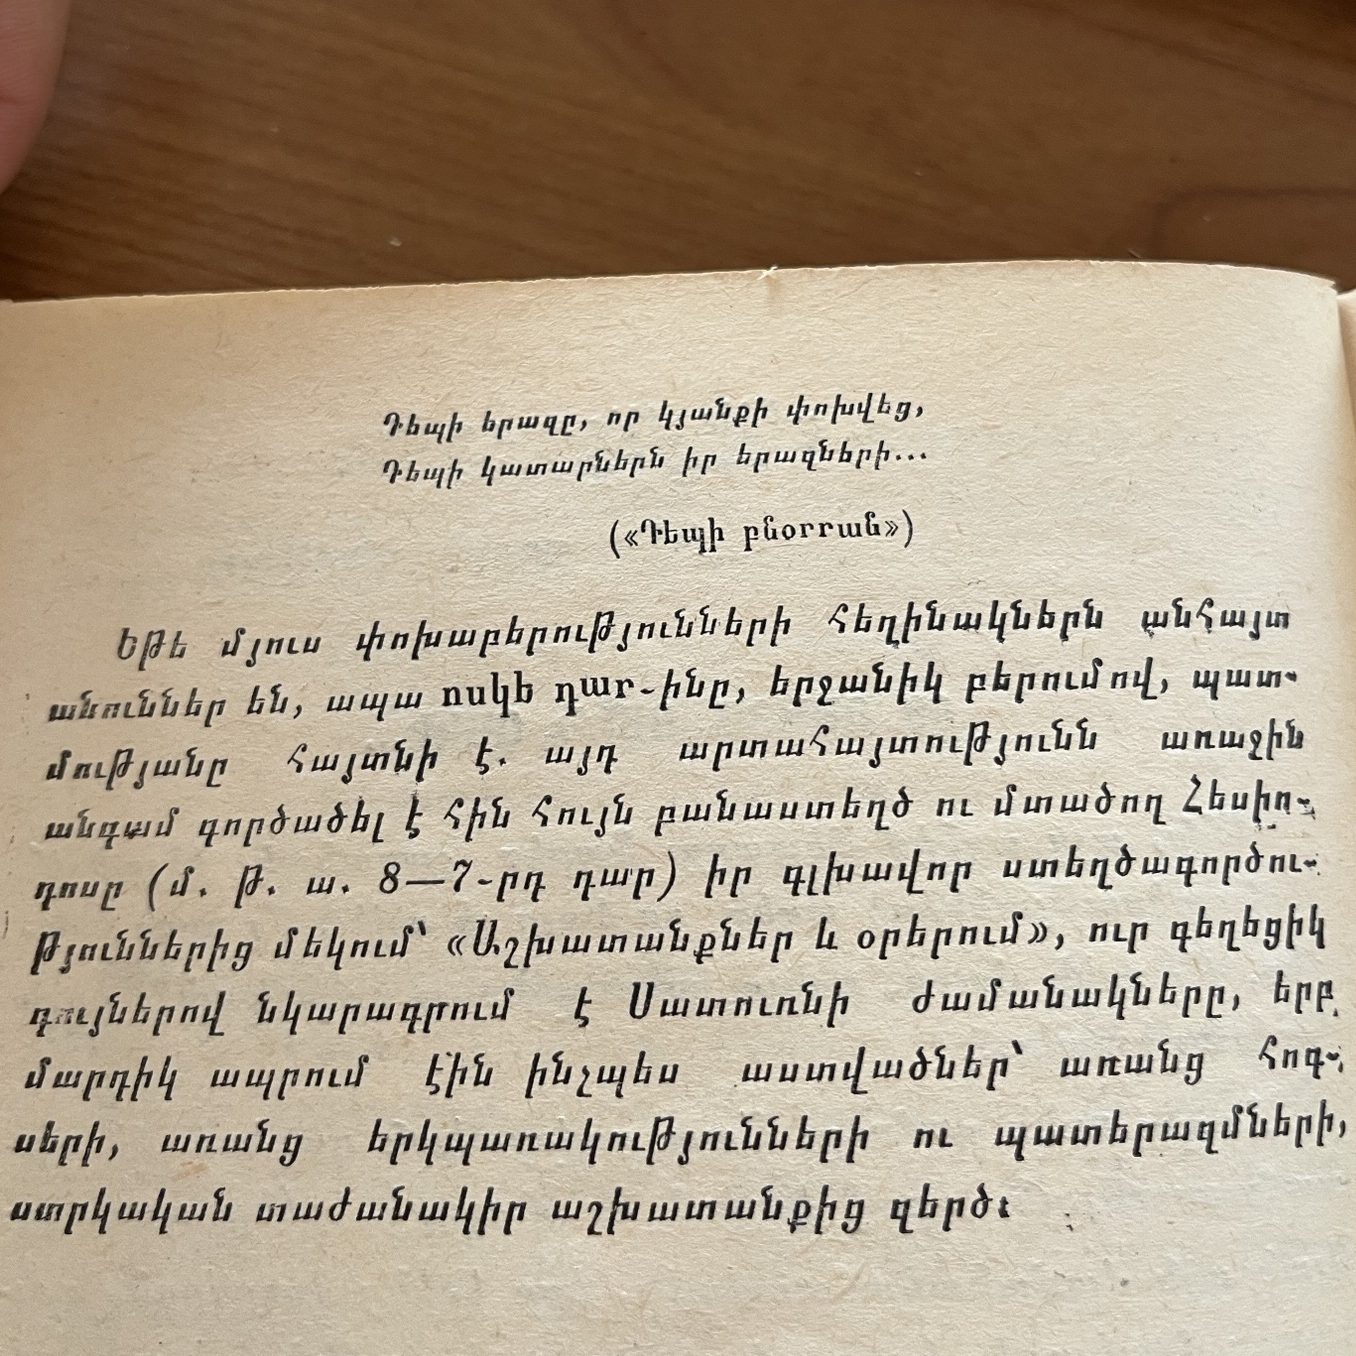 Դեպի երազը, որ կյանքի փոխվեց,
Դեպի կատարներն իր երազների...
(«Դեպի բնօրրան»)
Եթե մյուս փոխաբերությունների հեղինակներն անհայտ
անուններ են, ապա ոսկե դար-ինը, երջանիկ բերումով, պատ-
մությանը հայտնի է. այդ արտահայտությունն առաջին
անգամ գործածել է հին հույն բանաստեղծ ու մտածող Հեսիո-
դոսը (մ. թ. ա. 8—7-րդ դար) իր գլխավոր ստեղծագործու-
թյուններից մեկում՝ «Աշխատանքներ և օրերում», ուր գեղեցիկ
գույներով նկարագրում է Սատուռնի ժամանակները, երբ
մարդիկ ապրում էին ինչպես աստվածներ՝ առանց հոգ-
սերի, առանց երկպառակությունների ու պատերազմների,
ստրկական տաժանակիր աշխատանքից զերծ։